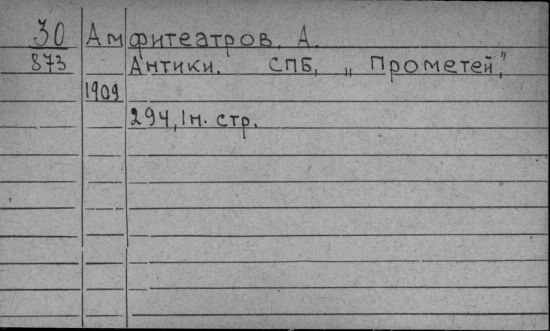 30 Амфитеатров, А.
873 Антики. СПБ, „Прометей,"
1909
294, 1н. стр.